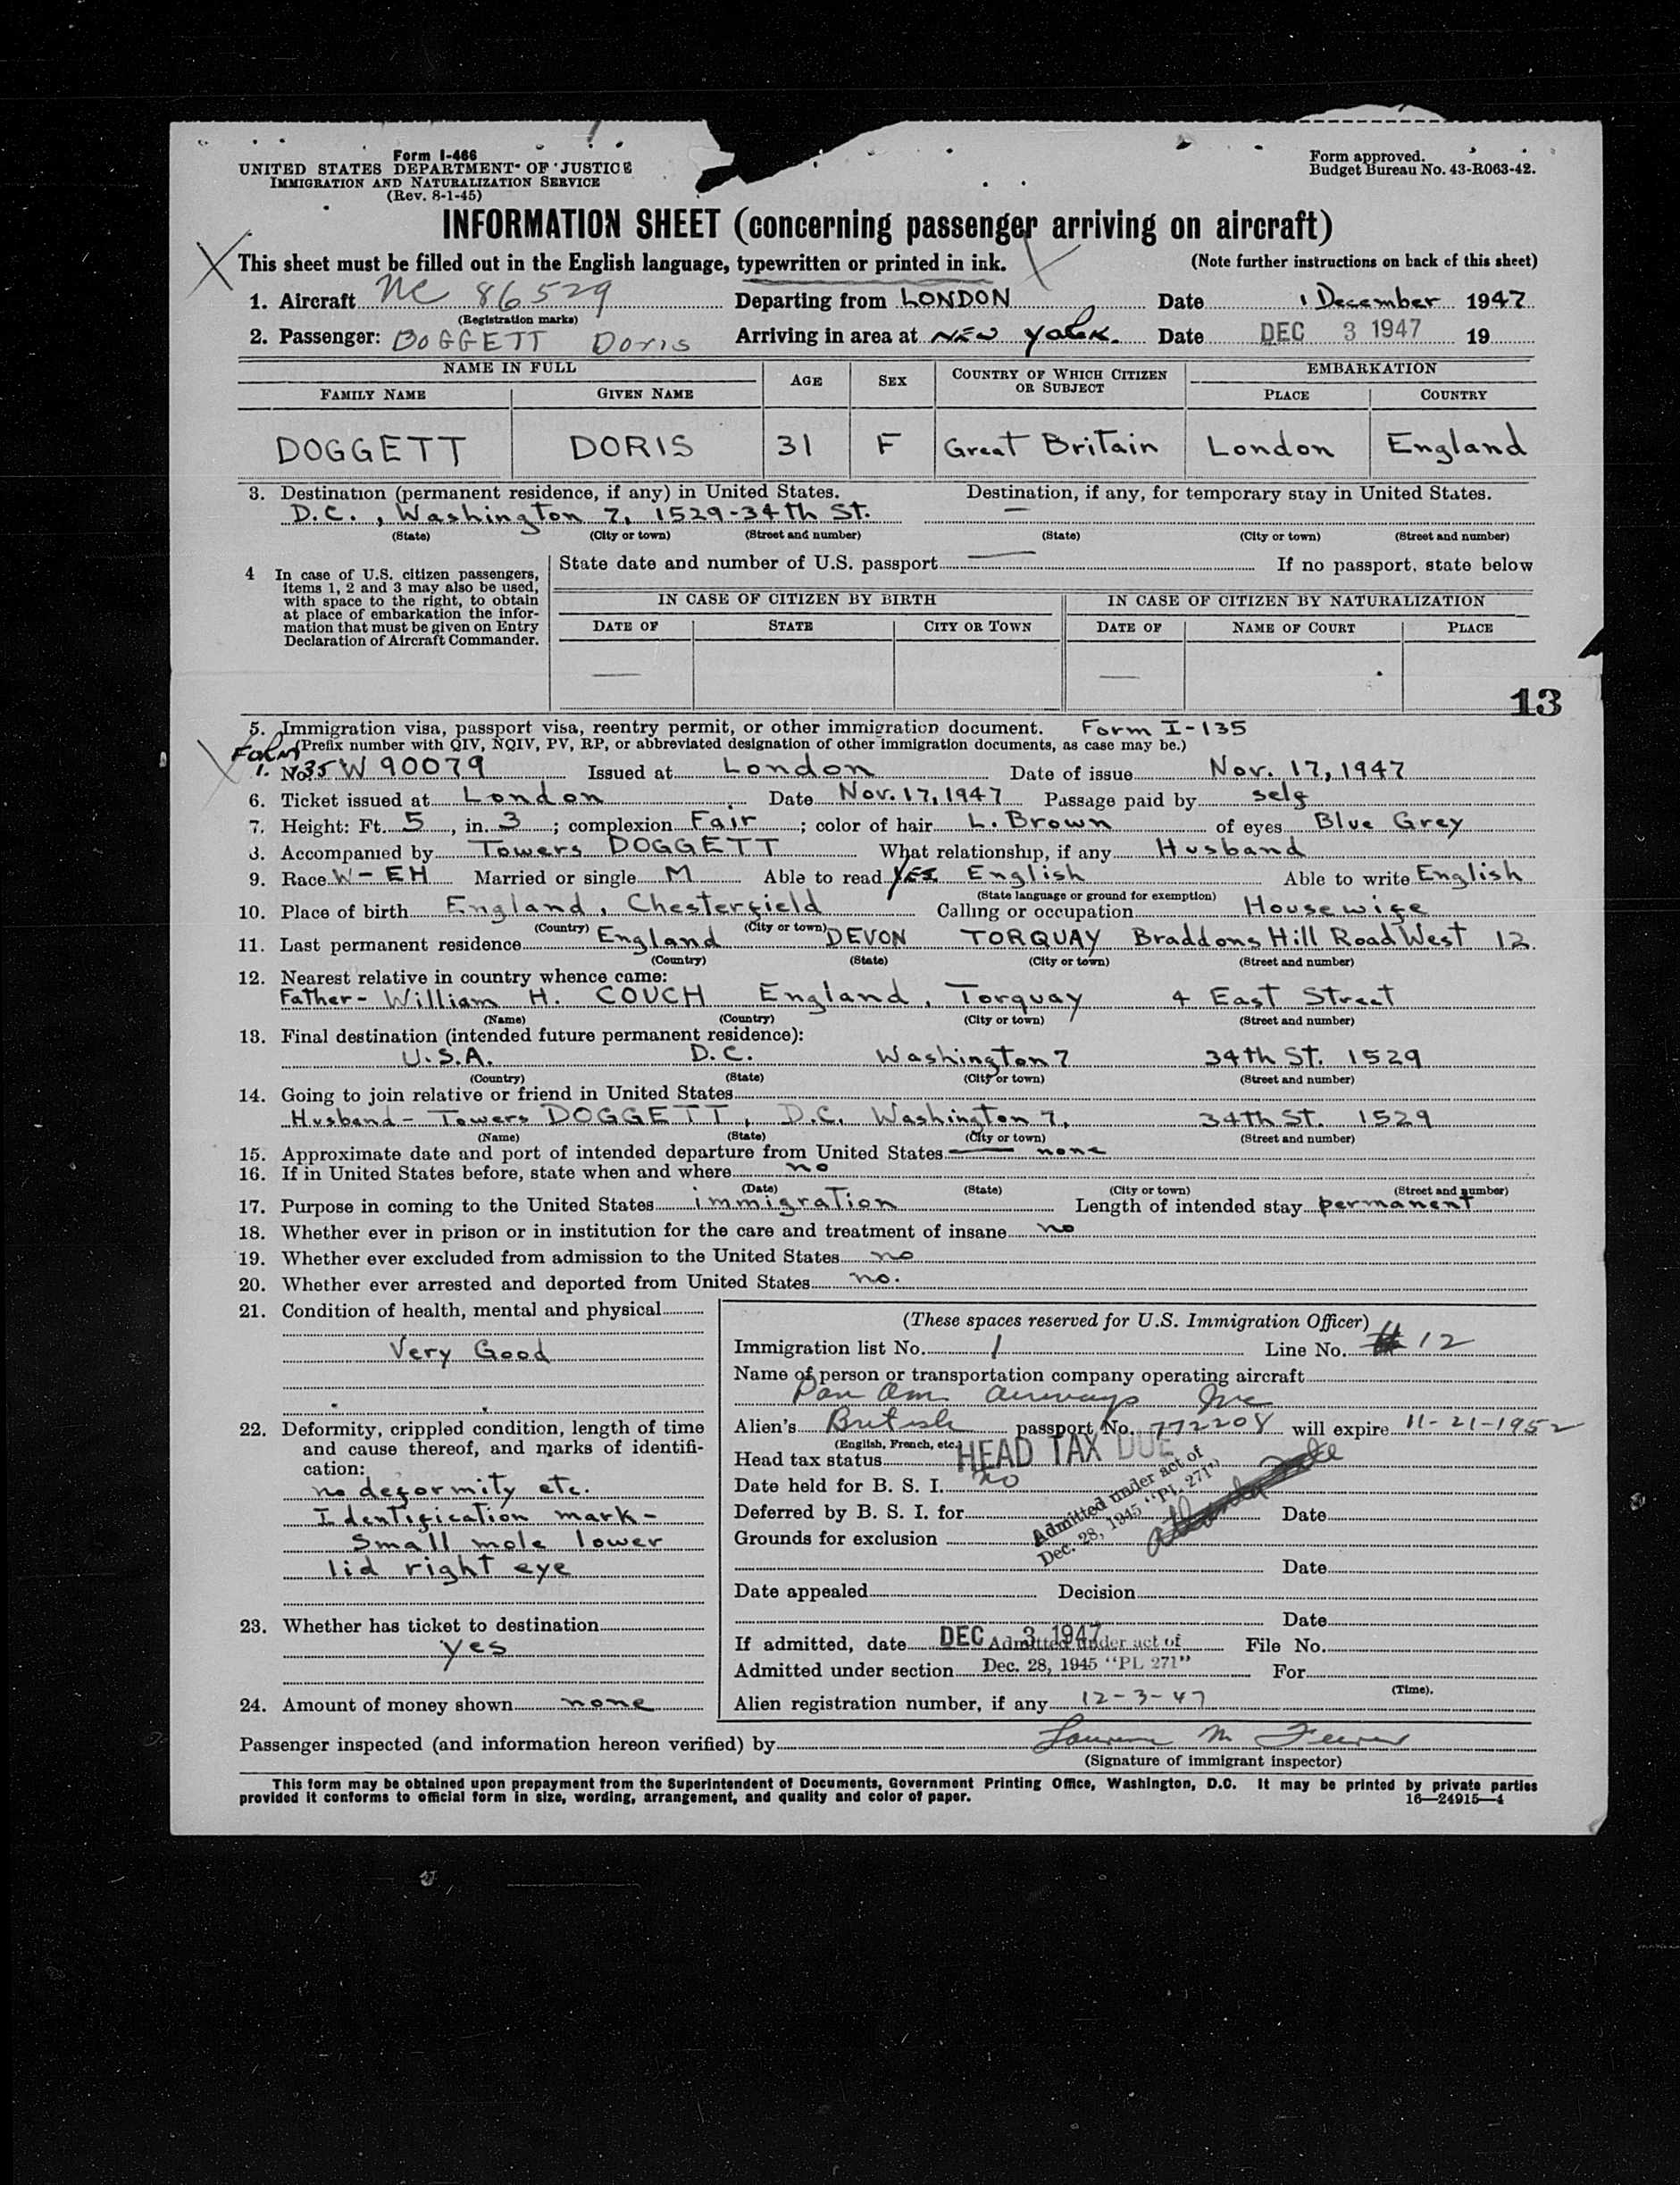 Form I-466
UNITED STATES DEPARTMENT OF JUSTICE
IMMIGRATION AND NATURALIZATION SERVICE
(Rev. 8-1-45)
Form approved.
Budget Bureau No. 43-R063-42.
INFORMATION SHEET (concerning passenger arriving on aircraft)
This sheet must be filled out in the English language, typewritten or printed in ink. (Note further instructions on back of this sheet)
1. Aircraft NC 86529 Departing from LONDON Date 1 December 1947
(Registration marks)
2. Passenger: DOGGETT Doris Arriving in area at NEW YORK. Date DEC 3 1947 19
NAME IN FULL AGE SEX COUNTRY OF WHICH CITIZEN OR SUBJECT EMBARKATION
FAMILY NAME GIVEN NAME PLACE COUNTRY
DOGGETT DORIS 31 F Great Britain London England
3. Destination (permanent residence, if any) in United States. Destination, if any, for temporary stay in United States.
D.C., Washington 7, 1529-34th St. —
(State) (City or town) (Street and number) (State) (City or town) (Street and number)
4 In case of U.S. citizen passengers, items 1, 2 and 3 may also be used, with space to the right, to obtain at place of embarkation the information that must be given on Entry Declaration of Aircraft Commander.
State date and number of U.S. passport — If no passport, state below
IN CASE OF CITIZEN BY BIRTH IN CASE OF CITIZEN BY NATURALIZATION
DATE OF STATE CITY OR TOWN DATE OF NAME OF COURT PLACE
— —
13
5. Immigration visa, passport visa, reentry permit, or other immigration document. Form I-135
(Prefix number with QIV, NQIV, PV, RP, or abbreviated designation of other immigration documents, as case may be.)
Form
1. No. 135 W 90079 Issued at London Date of issue Nov. 17, 1947
6. Ticket issued at London Date Nov. 17, 1947 Passage paid by self
7. Height: Ft. 5, in. 3; complexion Fair; color of hair L. Brown of eyes Blue Grey
8. Accompanied by Towers DOGGETT What relationship, if any Husband
9. Race W-EH Married or single M Able to read YES English Able to write English
(State language or ground for exemption)
10. Place of birth England, Chesterfield Calling or occupation Housewife
(Country) (City or town)
11. Last permanent residence England DEVON TORQUAY Braddons Hill Road West 12
(Country) (State) (City or town) (Street and number)
12. Nearest relative in country whence came:
Father- William H. COUCH England, Torquay 4 East Street
(Name) (Country) (City or town) (Street and number)
13. Final destination (intended future permanent residence):
U.S.A. D.C. Washington 7 34th St. 1529
(Country) (State) (City or town) (Street and number)
14. Going to join relative or friend in United States
Husband - Towers DOGGETT, D.C. Washington 7, 34th St. 1529
(Name) (State) (City or town) (Street and number)
15. Approximate date and port of intended departure from United States — none
16. If in United States before, state when and where no
(Date) (State) (City or town) (Street and number)
17. Purpose in coming to the United States immigration Length of intended stay permanent
18. Whether ever in prison or in institution for the care and treatment of insane no
19. Whether ever excluded from admission to the United States no
20. Whether ever arrested and deported from United States no.
21. Condition of health, mental and physical
Very Good
22. Deformity, crippled condition, length of time
and cause thereof, and marks of identifi-
cation:
no deformity etc.
Identification mark-
Small mole lower
lid right eye
23. Whether has ticket to destination
yes
24. Amount of money shown none
(These spaces reserved for U.S. Immigration Officer)
Immigration list No. 1 Line No. 12
Name of person or transportation company operating aircraft
Pan Am Airways Inc
Alien's British passport No. 772208 will expire 11-21-1952
(English, French, etc.)
Head tax status HEAD TAX DUE
Date held for B. S. I. no
Admitted under act of
Dec. 28, 1945 "PL 271"
Deferred by B. S. I. for Date
Grounds for exclusion
Date
Date appealed Decision
Date
If admitted, date DEC 3 1947 File No.
Admitted under act of
Admitted under section Dec. 28, 1945 "PL 271" For
(Time).
Alien registration number, if any 12-3-47
Passenger inspected (and information hereon verified) by
(Signature of immigrant inspector)
This form may be obtained upon prepayment from the Superintendent of Documents, Government Printing Office, Washington, D.C. It may be printed by private parties
provided it conforms to official form in size, wording, arrangement, and quality and color of paper.
16—24915—4